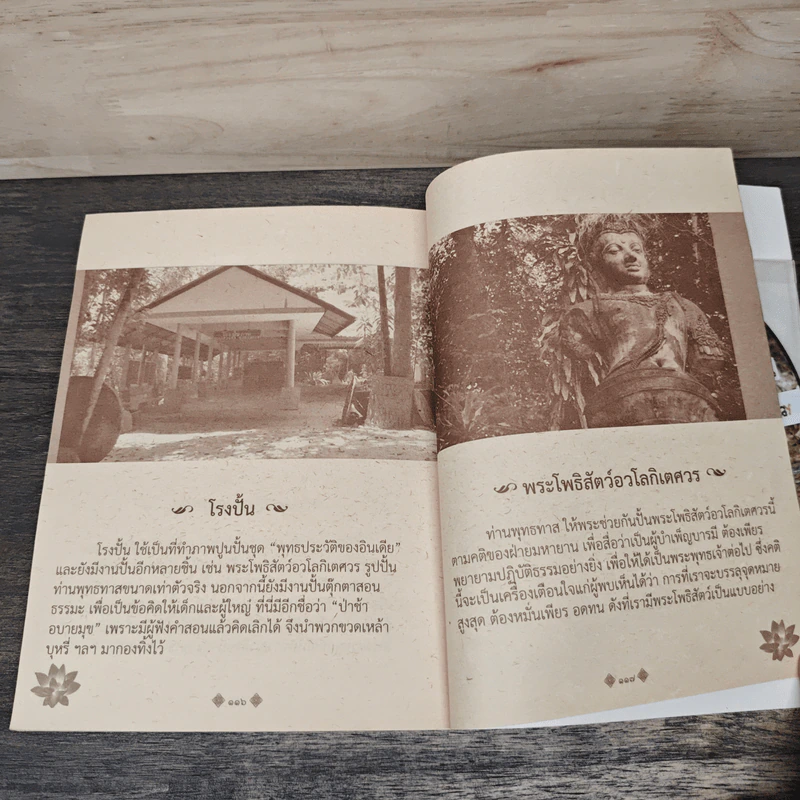 โรงปั้น
โรงปั้น ใช้เป็นที่ทำภาพปูนปั้นชุด “พุทธประวัติของอินเดีย”
และยังมีงานปั้นอีกหลายชิ้น เช่น พระโพธิสัตว์อวโลกิเตศวร รูปปั้น
ท่านพุทธทาสขนาดเท่าตัวจริง นอกจากนี้ยังมีงานปั้นตุ๊กตาสอน
ธรรมะ เพื่อเป็นข้อคิดให้เด็กและผู้ใหญ่ ที่นี่มีอีกชื่อว่า “ป่าช้า
อบายมุข” เพราะมีผู้ฟังคำสอนแล้วคิดเลิกได้ จึงนำพวกขวดเหล้า
บุหรี่ ฯลฯ มากองทิ้งไว้
๑๑๖
พระโพธิสัตว์อวโลกิเตศวร
ท่านพุทธทาส ให้พระช่วยกันปั้นพระโพธิสัตว์อวโลกิเตศวรนี้
ตามคติของฝ่ายมหายาน เพื่อสื่อว่าเป็นผู้บำเพ็ญบารมี ต้องเพียร
พยายามปฏิบัติธรรมอย่างยิ่ง เพื่อให้ได้เป็นพระพุทธเจ้าต่อไป ซึ่งคติ
นี้จะเป็นเครื่องเตือนใจแก่ผู้พบเห็นได้ว่า การที่เราจะบรรลุจุดหมาย
สูงสุด ต้องหมั่นเพียร อดทน ดังที่เรามีพระโพธิสัตว์เป็นแบบอย่าง
๑๑๗